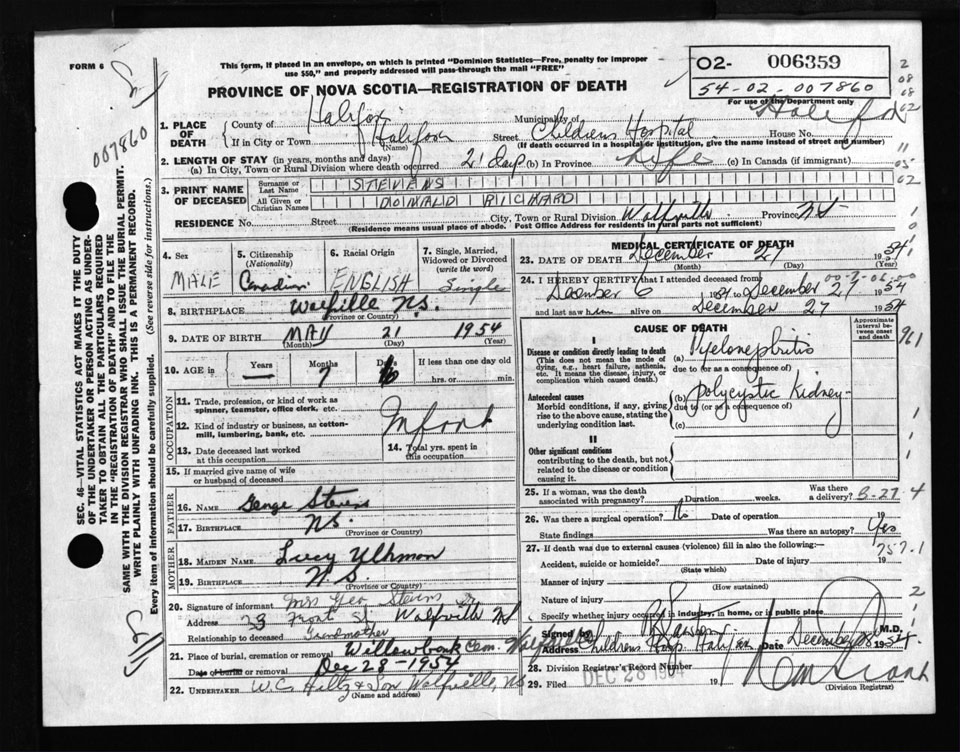 FORM 6
This form, if placed in an envelope, on which is printed "Dominion Statistics—Free, penalty for improper
use $50," and properly addressed will pass through the mail "FREE"
02- 006359
54-02-007860
For use of the Department only
PROVINCE OF NOVA SCOTIA—REGISTRATION OF DEATH
007860
1. PLACE OF DEATH
County of Halifax
Municipality of Halifax
If in City or Town Halifax
(Name)
Street Childrens Hospital House No.
(If death occurred in a hospital or institution, give the name instead of street and number)
2. LENGTH OF STAY (in years, months and days)
(a) In City, Town or Rural Division where death occurred 21 days (b) In Province Life (c) In Canada (if immigrant)
3. PRINT NAME OF DECEASED
Surname or Last Name STEVENS
All Given or Christian Names DONALD RICHARD
RESIDENCE No. Street City, Town or Rural Division Wolfville Province NS
(Residence means usual place of abode. Post Office Address for residents in rural parts not sufficient)
4. Sex
MALE
5. Citizenship
(Nationality)
Canadian
6. Racial Origin
ENGLISH
7. Single, Married,
Widowed or Divorced
(write the word)
Single
8. BIRTHPLACE Wolfville N.S.
(Province or Country)
9. DATE OF BIRTH MAY 21 1954
(Month) (Day) (Year)
10. AGE in Years — Months 7 Days 6 If less than one day old
hrs. or min.
OCCUPATION
11. Trade, profession, or kind of work as
spinner, teamster, office clerk, etc.
Infant
12. Kind of industry or business, as cotton-
mill, lumbering, bank, etc.
13. Date deceased last worked
at this occupation
14. Total yrs. spent in
this occupation
15. If married give name of wife
or husband of deceased
FATHER
16. NAME George Stevens
17. BIRTHPLACE N.S.
(Province or Country)
MOTHER
18. MAIDEN NAME Lucy
19. BIRTHPLACE N.S.
(Province or Country)
20. Signature of informant Mrs Geo Stevens Sr
Address 23 Front St Wolfville NS
Relationship to deceased Grandmother
21. Place of burial, cremation or removal Willowbank Cem. Wolfville
Date of burial or removal Dec 28 - 1954
22. UNDERTAKER W.C. Hiltz & Son Wolfville, NS
(Name and address)
MEDICAL CERTIFICATE OF DEATH
23. DATE OF DEATH December 27 1954
(Month) (Day) (Year)
24. I HEREBY CERTIFY that I attended deceased from
December 6 1954 to December 27 1954
and last saw him alive on December 27 1954
CAUSE OF DEATH
Approximate interval between onset and death
I
Disease or condition directly leading to death
(This does not mean the mode of
dying, e.g., heart failure, asthenia,
etc. It means the disease, injury, or
complication which caused death.)
(a) Pyelonephritis
due to (or as a consequence of)
Antecedent causes
Morbid conditions, if any, giving
rise to the above cause, stating the
underlying condition last.
(b) polycystic kidney
due to (or as a consequence of)
(c)
II
Other significant conditions
contributing to the death, but not
related to the disease or condition
causing it.
25. If a woman, was the death
associated with pregnancy? Duration weeks. Was there
a delivery?
3-27 4
26. Was there a surgical operation? No Date of operation 19
State findings Was there an autopsy? Yes
27. If death was due to external causes (violence) fill in also the following:—
757.1
Accident, suicide or homicide? Date of injury 19
(State which)
Manner of injury
(How sustained)
Nature of injury
Specify whether injury occurred in industry, in home, or in public place
Signed by M.D.
Address Childrens Hosp. Halifax Date December 28 1954
28. Division Registrar's Record Number
29. Filed DEC 28 1954 19
(Division Registrar)
SEC. 46—VITAL STATISTICS ACT MAKES IT THE DUTY
OF THE UNDERTAKER OR PERSON ACTING AS UNDER-
TAKER TO OBTAIN ALL THE PARTICULARS REQUIRED
IN THE "REGISTRATION OF DEATH" AND TO FILE THE
SAME WITH THE DIVISION REGISTRAR WHO SHALL ISSUE THE BURIAL PERMIT.
WRITE PLAINLY WITH UNFADING INK. THIS IS A PERMANENT RECORD.
Every item of information should be carefully supplied. (See reverse side for instructions.)